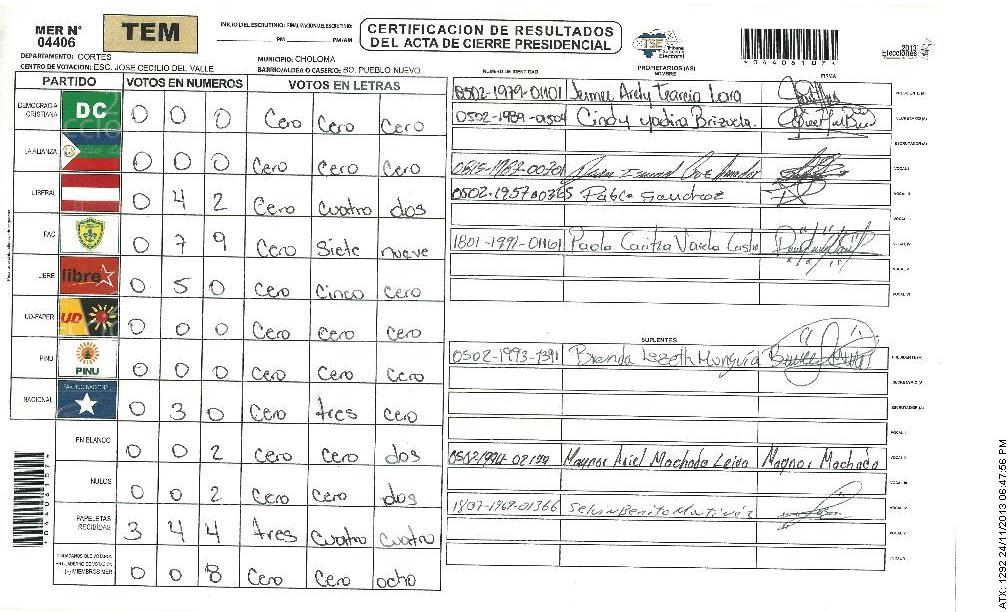 MER N° 04406
TEM
INICIO DEL ESCRUTINIO: FINALIZACION DEL ESCRUTINIO:
PM PM/AM
CERTIFICACION DE RESULTADOS
DEL ACTA DE CIERRE PRESIDENCIAL
TSE Tribunal Supremo Electoral
Elecciones 2013
DEPARTAMENTO: CORTES
MUNICIPIO: CHOLOMA
CENTRO DE VOTACION: ESC. JOSE CECILIO DEL VALLE
BARRIO/ALDEA O CASERIO: BO. PUEBLO NUEVO
PARTIDO VOTOS EN NUMEROS VOTOS EN LETRAS
DEMOCRACIA CRISTIANA DC 0 0 0 Cero Cero Cero
LA ALIANZA 0 0 0 Cero Cero Cero
LIBERAL 0 4 2 Cero cuatro dos
PAC 0 7 9 Cero Siete nueve
LIBRE libre 0 5 0 Cero Cinco Cero
UD-FAPER UD 0 0 0 Cero Cero Cero
PINU PINU 0 0 0 Cero Cero Cero
NACIONAL PARTIDO NACIONAL 0 3 0 Cero tres cero
EN BLANCO 0 0 2 Cero Cero dos
NULOS 0 0 2 Cero Cero dos
PAPELETAS RECIBIDAS 3 4 4 tres Cuatro cuatro
CIUDADANOS QUE VOTARON EN CUADERNO DE VOTACION (+) MIEMBROS MER 0 0 8 Cero Cero ocho
NUMERO DE IDENTIDAD PROPIETARIOS (AS) NOMBRE FIRMA
0502-1979-01101 Arely Garcia Lara PRESIDENTE (A)
0502-1989-01504 Cindy Yadira Brizuela SECRETARIO (A)
ESCRUTADOR (A)
VOCAL I
0502-1957-00365 Pablo Sandroz VOCAL II
VOCAL III
1801-1991-01161 Paola Caritza Varela Castro VOCAL IV
VOCAL V
VOCAL VI
SUPLENTES
0502-1993-1391 Brenda Lizeth Munguia PRESIDENTE (A)
SECRETARIO (A)
ESCRUTADOR (A)
VOCAL I
0502 1994-02179 Maynor Ariel Machado Leiva Maynor Machado VOCAL II
VOCAL III
1807-1969-01366 Benito Martinez VOCAL IV
VOCAL V
VOCAL VI
ATX: 1292 24/11/2013 06:47:56 PM